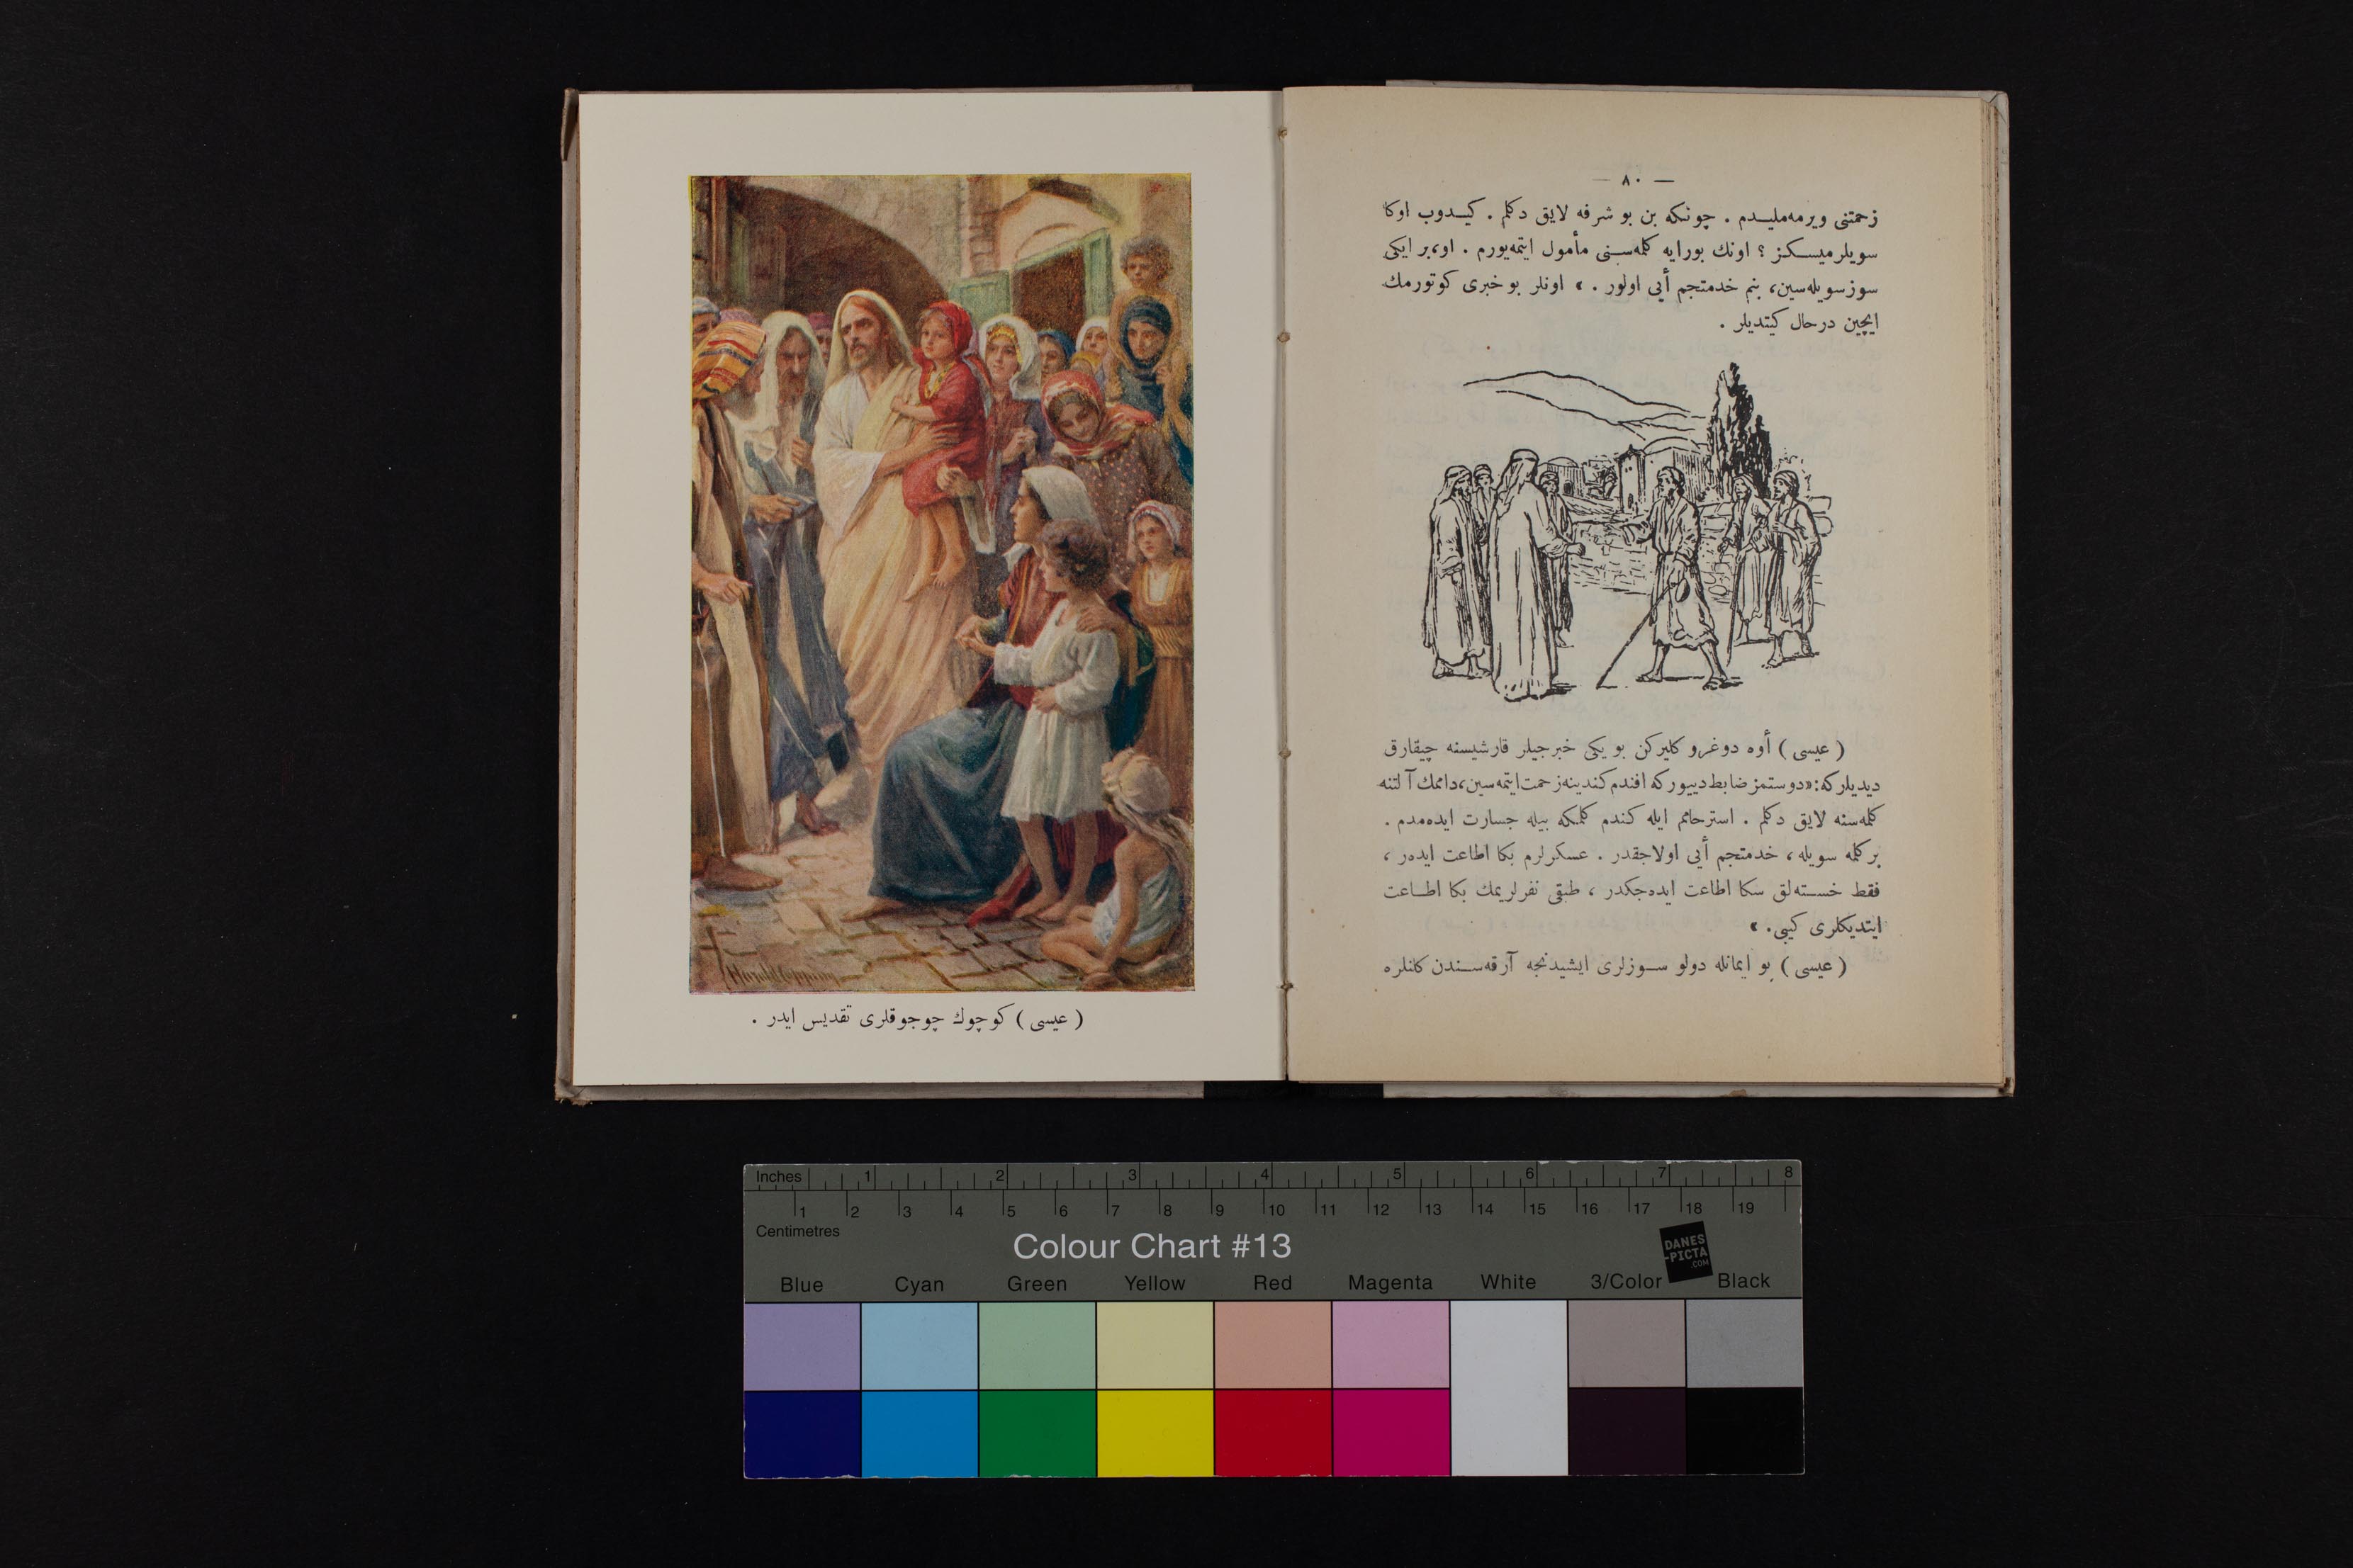 — ٨٠ —
زحمتنی ویرمه‌ملیـدم . چونكه بن بو شرفه لایق دكلم . كیـدوب اوكا
سویلرمیسـكز ؟ اونك بورایه كلمه‌سـنی مأمول ایتمه‌یورم . او،بر ایكی
سوز سویله‌سین، بنم خدمتجم أیی اولور . » اونلر بو خبری كوتورمك
ایچین درحال كیتدیلر .
( عیسی ) أوه دوغرو كلیركن بو یكی خبرجیلر قارشیسنه چیقارق
دیدیلركه: «دوستمز ضابط دیيور كه افندم كندینه زحمت ایتمه‌سین، دامك آلتنه
كلمه‌سنه لایق دكلم . استرحامم ایله كندم كلمكه بیله جسارت ایده‌مدم .
بر كلمه سویله ، خدمتجم أیی اولاجقدر . عسكرلرم بكا اطاعت ایدەر ،
فقط خسـته‌لق سكا اطاعت ایده‌جكدر ، طبقی نفرلریمك بكا اطـاعت
ایتدیكلری كیبی. »
( عیسی ) بو ایمانله دولو سـوزلری ایشیدنجه آرقه‌سـندن كلنلره
Harold Copping
( عیسی ) كوچوك چوجوقلری تقدیس ایدر .
Inches 1 2 3 4 5 6 7 8
1 2 3 4 5 6 7 8 9 10 11 12 13 14 15 16 17 18 19
Centimetres
Colour Chart #13
DANES
-PICTA
.COM
Blue Cyan Green Yellow Red Magenta White 3/Color Black